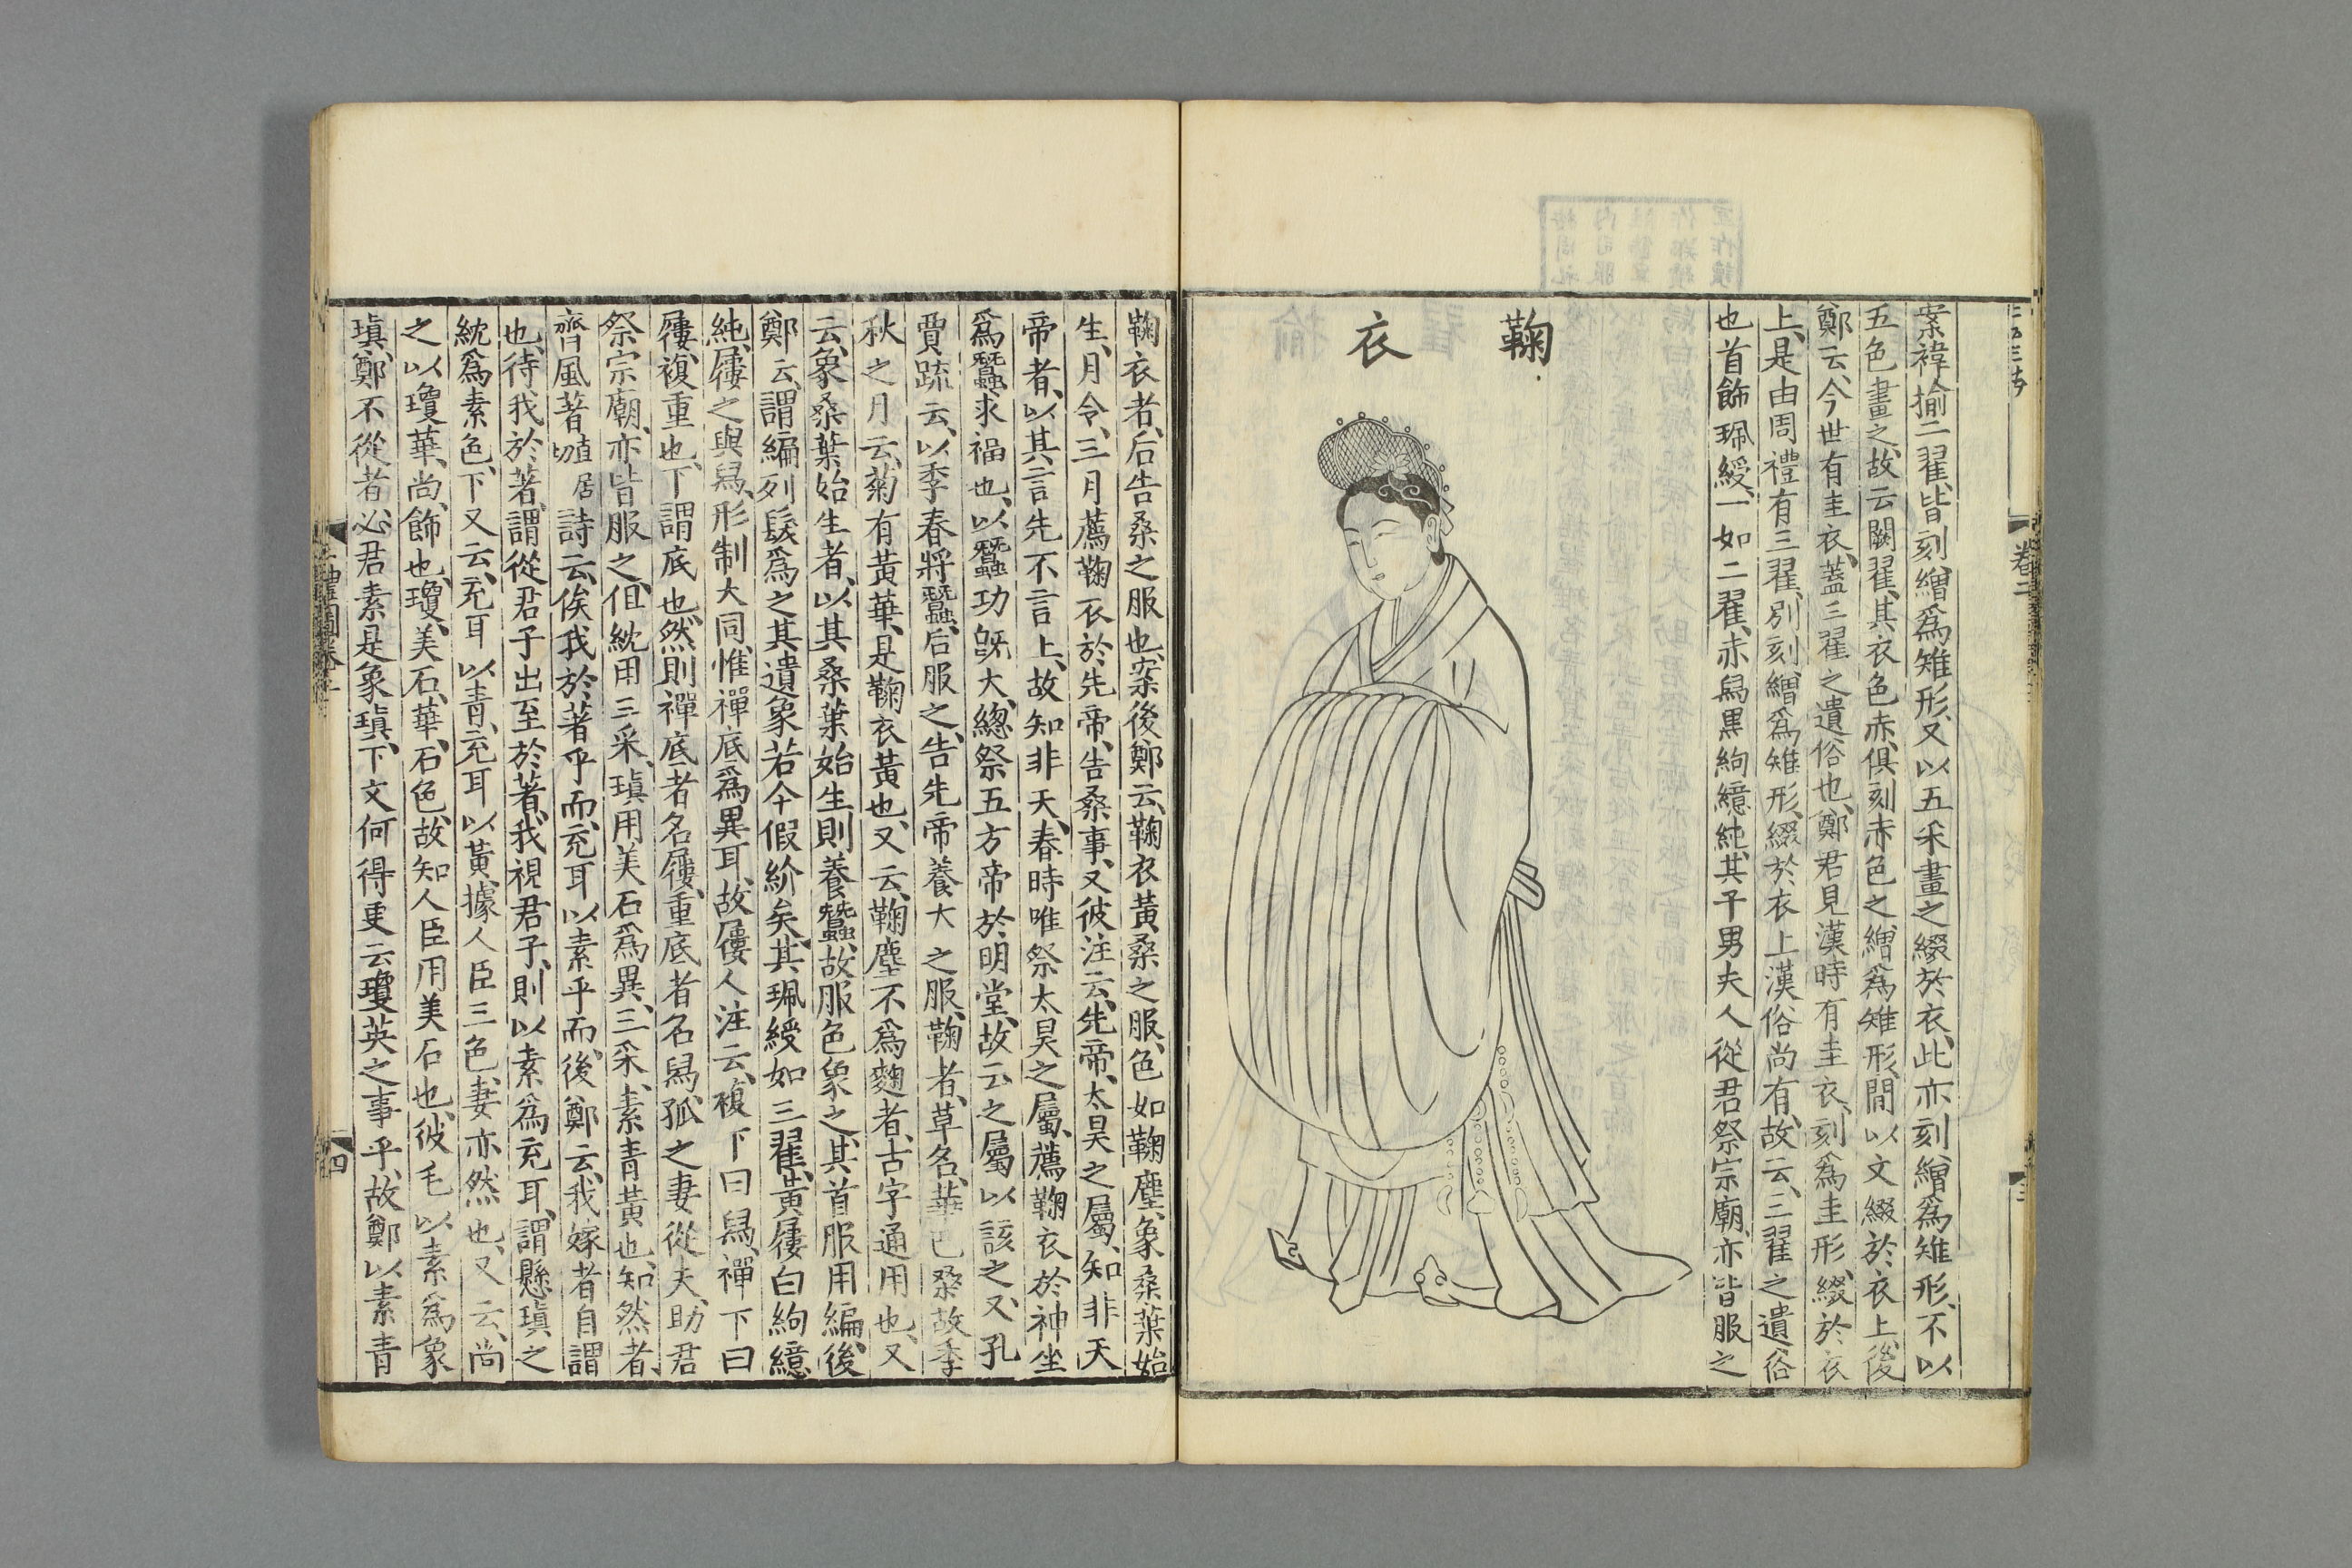 案褘揄二翟皆刻繒爲雉形又以五采畫之綴於衣此亦刻繒爲雉形不以
五色畫之故云闕翟其衣色赤俱刻赤色之繒爲雉形間以文綴於衣上後
鄭云今世有圭衣蓋三翟之遺俗也鄭君見漢時有圭衣刻爲圭形綴於衣
上是由周禮有三翟別刻繒爲雉形綴於衣上漢俗尚有故云三翟之遺俗
也首飾珮綬一如二翟赤舄黒絇繶純其子男夫人從君祭宗廟亦皆服之
鞠衣
鞠衣者后告桑之服也案後鄭云鞠衣黄桑之服色如鞠塵象桑葉始
生月令三月薦鞠衣於先帝告桑事又彼注云先帝太昊之屬知非天
帝者以其言先不言上故知非天春時唯祭太昊之屬薦鞠衣於神坐
爲蠶求福也以蠶功旣大緫祭五方帝於明堂故云之屬以該之又孔
賈疏云以季春將蠶后服之告先帝養大之服鞠者草名華已桑故季
秋之月云菊有黃華是鞠衣黃也又云鞠塵不爲麴者古字通用也又
云象桑葉始生者以其桑葉始生則養蠶故服色象之其首服用編後
鄭云謂編列髮爲之其遺象若今假紒矣其珮綬如三翟黃屨白絇繶
純屨之與舄形制大同惟禪底爲異耳故屨人注云複下曰舄禪下曰
屨複重也下謂底也然則禪底者名屨重底者名舄孤之妻從夫助君
祭宗廟亦皆服之但紞用三采瑱用美石爲異三采素青黃也知然者
齊風著直居切詩云俟我於著乎而充耳以素乎而後鄭云我嫁者自謂
也待我於著謂從君子出至於著我視君子則以素爲充耳謂懸瑱之
紞爲素色下又云充耳以青充耳以黃據人臣三色妻亦然也又云尚
之以瓊華尚飾也瓊美石華石色故知人臣用美石也彼毛以素爲象
瑱鄭不從者必君素是象瑱下文何得更云瓊英之事乎故鄭以素青
卷二
三
三禮圖卷二
四